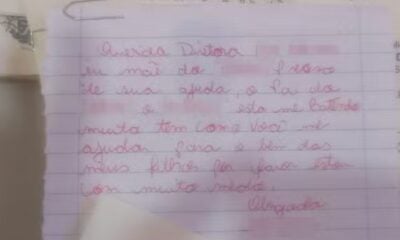 Querida Diretora
eu mãe da preciso
de sua ajuda, o Pai da
e esta me batendo
muito tem como você me
ajudar para o bem dos
meus filhos por favor estou
com muito medo.
Obrigada